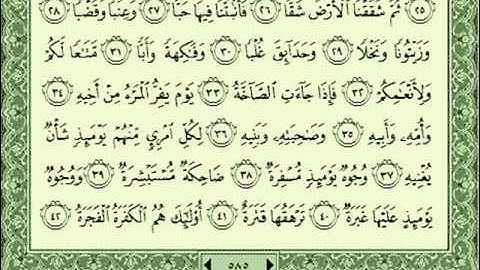 ٢٥ ثُمَّ شَقَقْنَا ٱلْأَرْضَ شَقًّا ٢٦ فَأَنۢبَتْنَا فِيهَا حَبًّا ٢٧ وَعِنَبًا وَقَضْبًا ٢٨
وَزَيْتُونًا وَنَخْلًا ٢٩ وَحَدَآئِقَ غُلْبًا ٣٠ وَفَٰكِهَةً وَأَبًّا ٣١ مَّتَٰعًا لَّكُمْ
وَلِأَنْعَٰمِكُمْ ٣٢ فَإِذَا جَآءَتِ ٱلصَّآخَّةُ ٣٣ يَوْمَ يَفِرُّ ٱلْمَرْءُ مِنْ أَخِيهِ ٣٤
وَأُمِّهِۦ وَأَبِيهِ ٣٥ وَصَٰحِبَتِهِۦ وَبَنِيهِ ٣٦ لِكُلِّ ٱمْرِئٍ مِّنْهُمْ يَوْمَئِذٍ شَأْنٌ
يُغْنِيهِ ٣٧ وُجُوهٌ يَوْمَئِذٍ مُّسْفِرَةٌ ٣٨ ضَاحِكَةٌ مُّسْتَبْشِرَةٌ ٣٩ وَوُجُوهٌ
يَوْمَئِذٍ عَلَيْهَا غَبَرَةٌ ٤٠ تَرْهَقُهَا قَتَرَةٌ ٤١ أُو۟لَٰٓئِكَ هُمُ ٱلْكَفَرَةُ ٱلْفَجَرَةُ ٤٢
٥٨٥